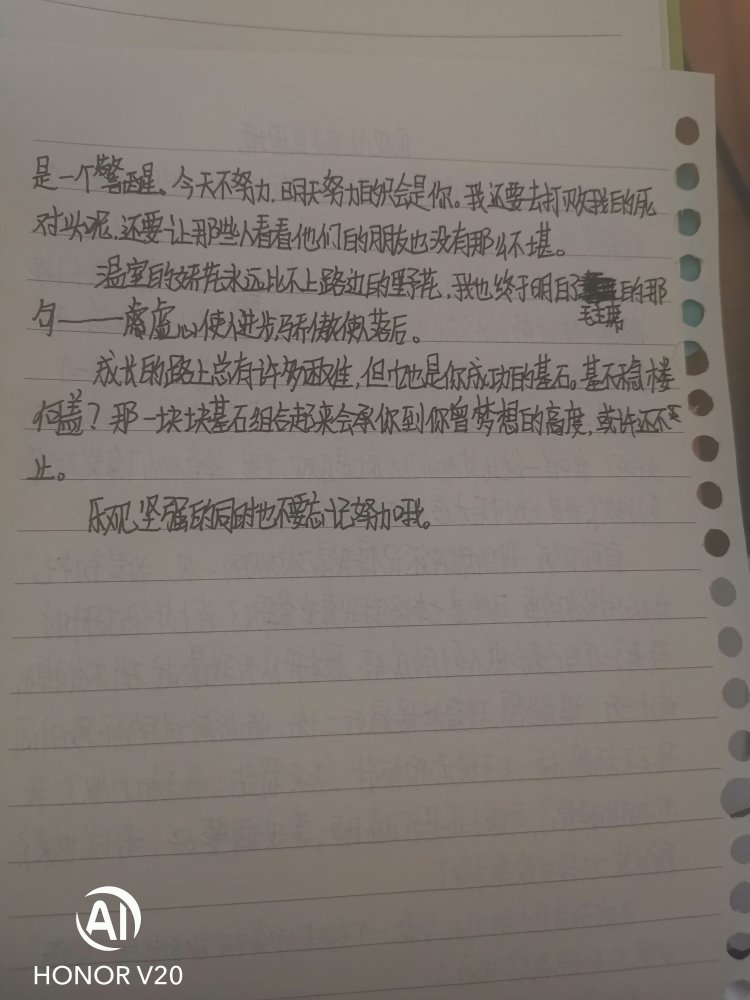 是一个警醒。今天不努力,明天努力的只会是你。我还要去打败我的死
对头呢,还要让那些人看看他们的朋友也没有那么不堪。
温室的娇花永远比不上路边的野花,我也终于明白了毛主席的那
句——虚心使人进步,骄傲使人落后。
成长的路上总有许多困难,但它也是你成功的基石。基不稳,楼
何盖?那一块块基石组合起来会承你到你曾梦想的高度,或许还不
止。
乐观、坚强的同时也不要忘记努力哦。
AI
HONOR V20